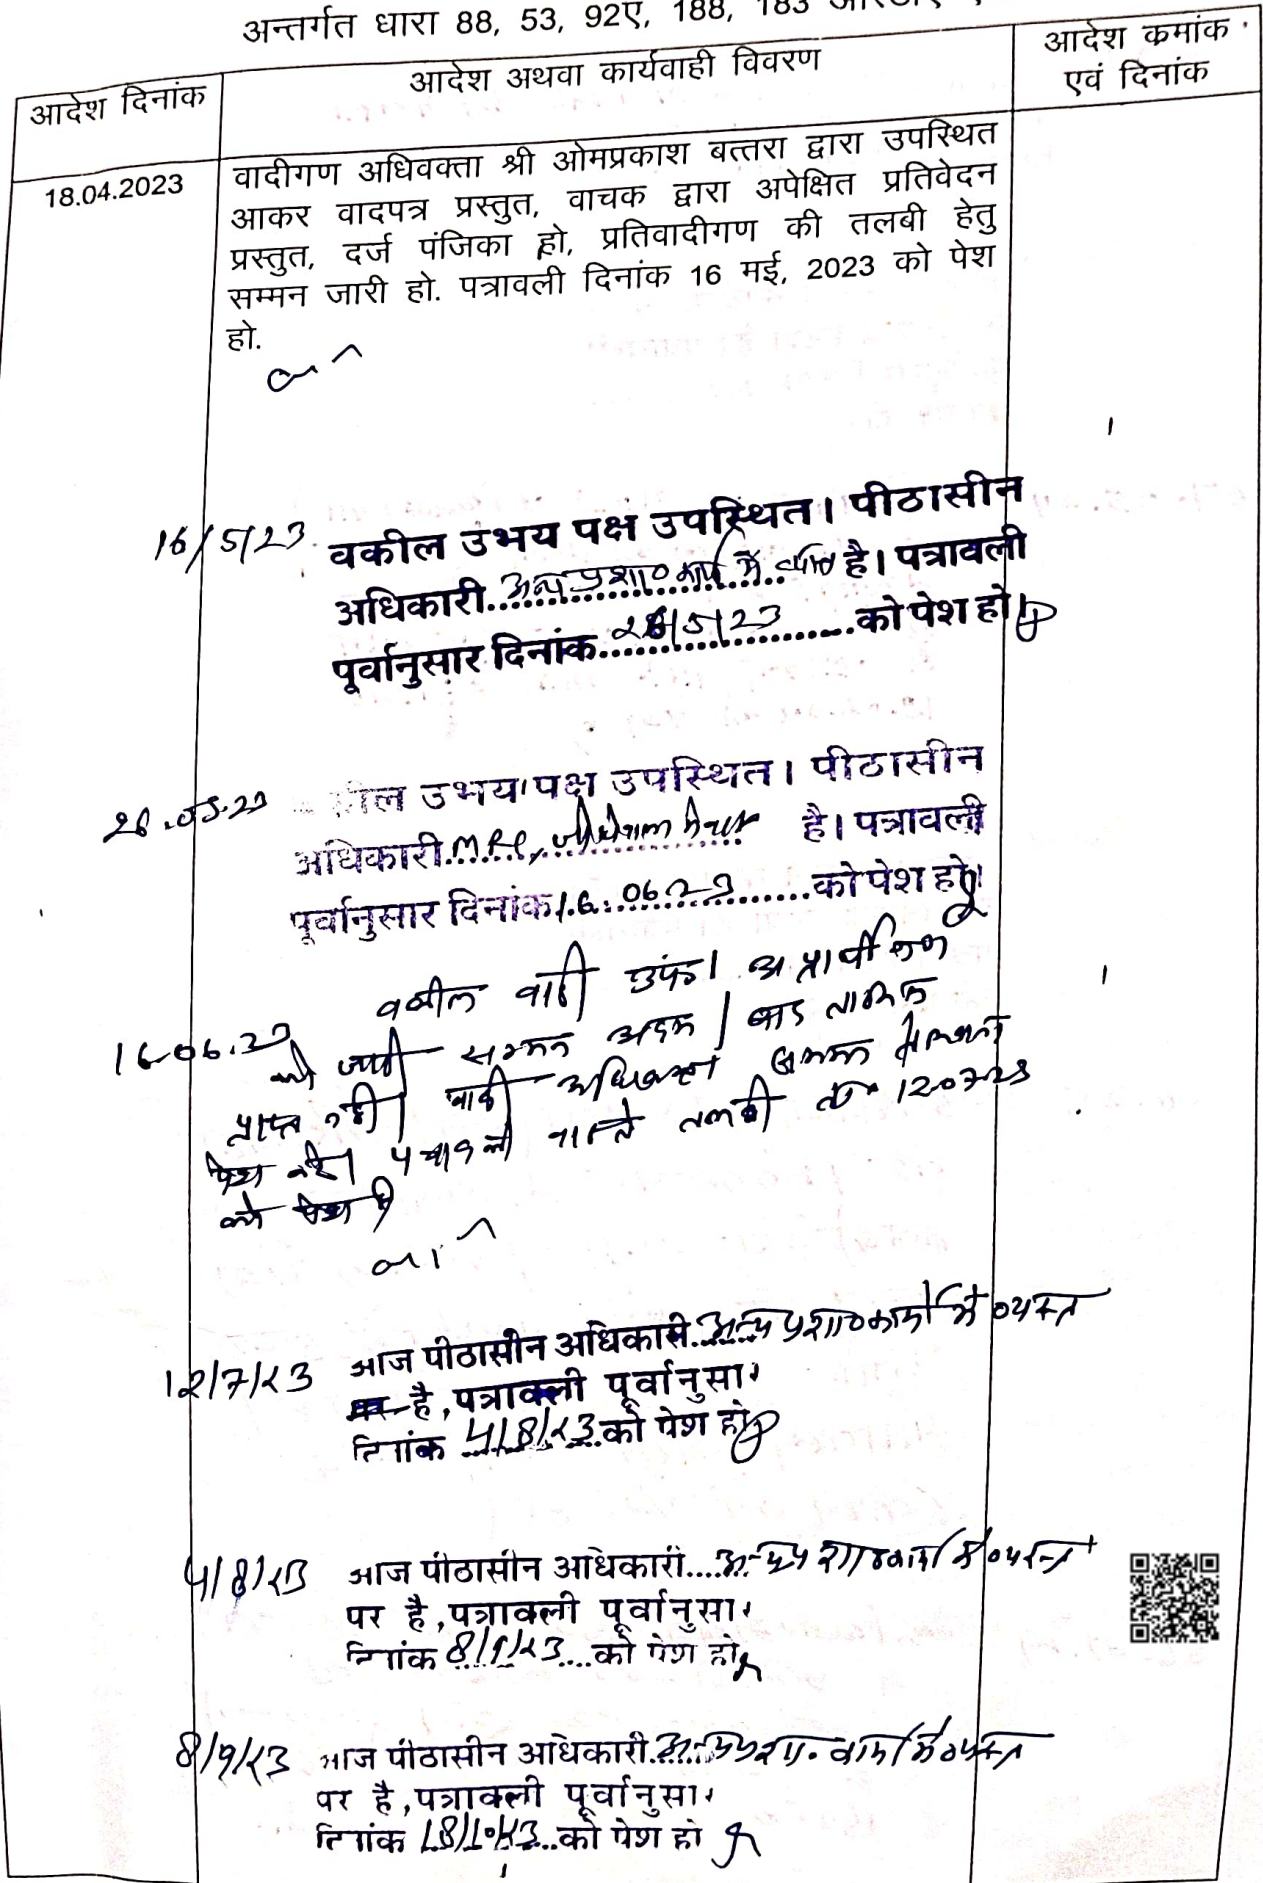 अन्तर्गत धारा 88, 53, 92ए, 188, 183
आदेश दिनांक
आदेश अथवा कार्यवाही विवरण
आदेश क्रमांक
एवं दिनांक
18.04.2023
वादीगण अधिवक्ता श्री ओमप्रकाश बत्तरा द्वारा उपस्थित
आकर वादपत्र प्रस्तुत, वाचक द्वारा अपेक्षित प्रतिवेदन
प्रस्तुत, दर्ज पंजिका हो, प्रतिवादीगण की तलबी हेतु
सम्मन जारी हो. पत्रावली दिनांक 16 मई, 2023 को पेश
हो.
16/5/23
वकील उभय पक्ष उपस्थित। पीठासीन
अधिकारी अन्य प्रशा० कार्य में व्यस्त है। पत्रावली
पूर्वानुसार दिनांक 26/5/23 को पेश हो।
26.05.23
उभय पक्ष उपस्थित। पीठासीन
अधिकारी है। पत्रावली
पूर्वानुसार दिनांक 16.06.23 को पेश हो।
16.06.23
वकील वादी उप०। अप्रार्थीगण
को जारी सम्मन अदम
प्राप्त नही। वादी अधिवक्ता सम्मन
पेश करे। पत्रावली वास्ते तलबी दि० 12.07.23
को पेश हो
12/7/23
आज पीठासीन अधिकारी अन्य प्रशा० कार्यो में व्यस्त
है, पत्रावली पूर्वानुसा
दिनांक 4/8/23 को पेश हो
4/8/23
आज पीठासीन अधिकारी अन्य प्रशा० कार्यो में व्यस्त
पर है, पत्रावली पूर्वानुसा
दिनांक 8/9/23 को पेश हो
8/9/23
आज पीठासीन अधिकारी अन्य प्रशा. कार्यो में व्यस्त
पर है, पत्रावली पूर्वानुसा
दिनांक 18/10/23 को पेश हो